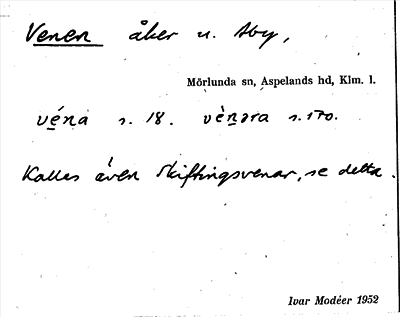 Venen åker u. Åby,
Mörlunda sn, Aspelands hd, Klm. l.
vé̱na s. 18. vèṉara s. 170.
Kallas även Skiftingsvenar, se detta.
Ivar Modéer 1952